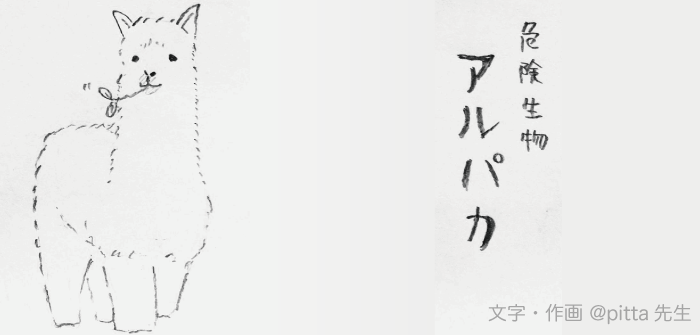 危険生物
アルパカ
文字・作画 @pitta 先生